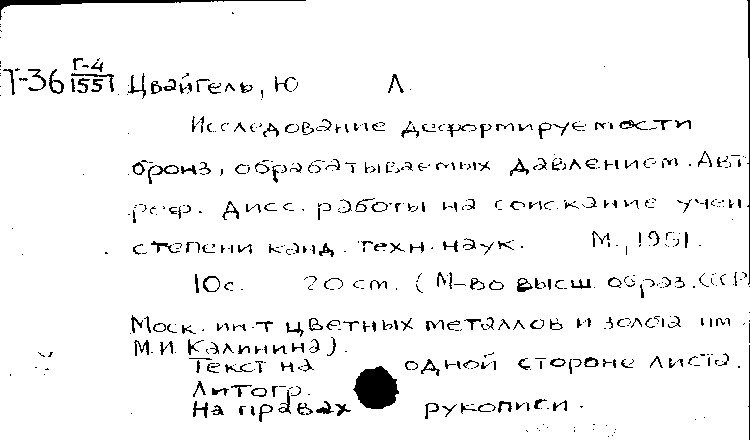 Т-36 Г-4/1551 Цвайгель, Ю Л.
Исследование деформируемости
бронз, обрабатываемых давлением. Авт
реф. дисс. работы на соискание учен.
степени канд. техн. наук. М., 1951.
10с. 20 см. (М-во высш. образ. СССР
Моск. ин-т цветных металлов и золота им.
М.И. Калинина).
Текст на одной стороне листа.
Литогр.
На правах рукописи.